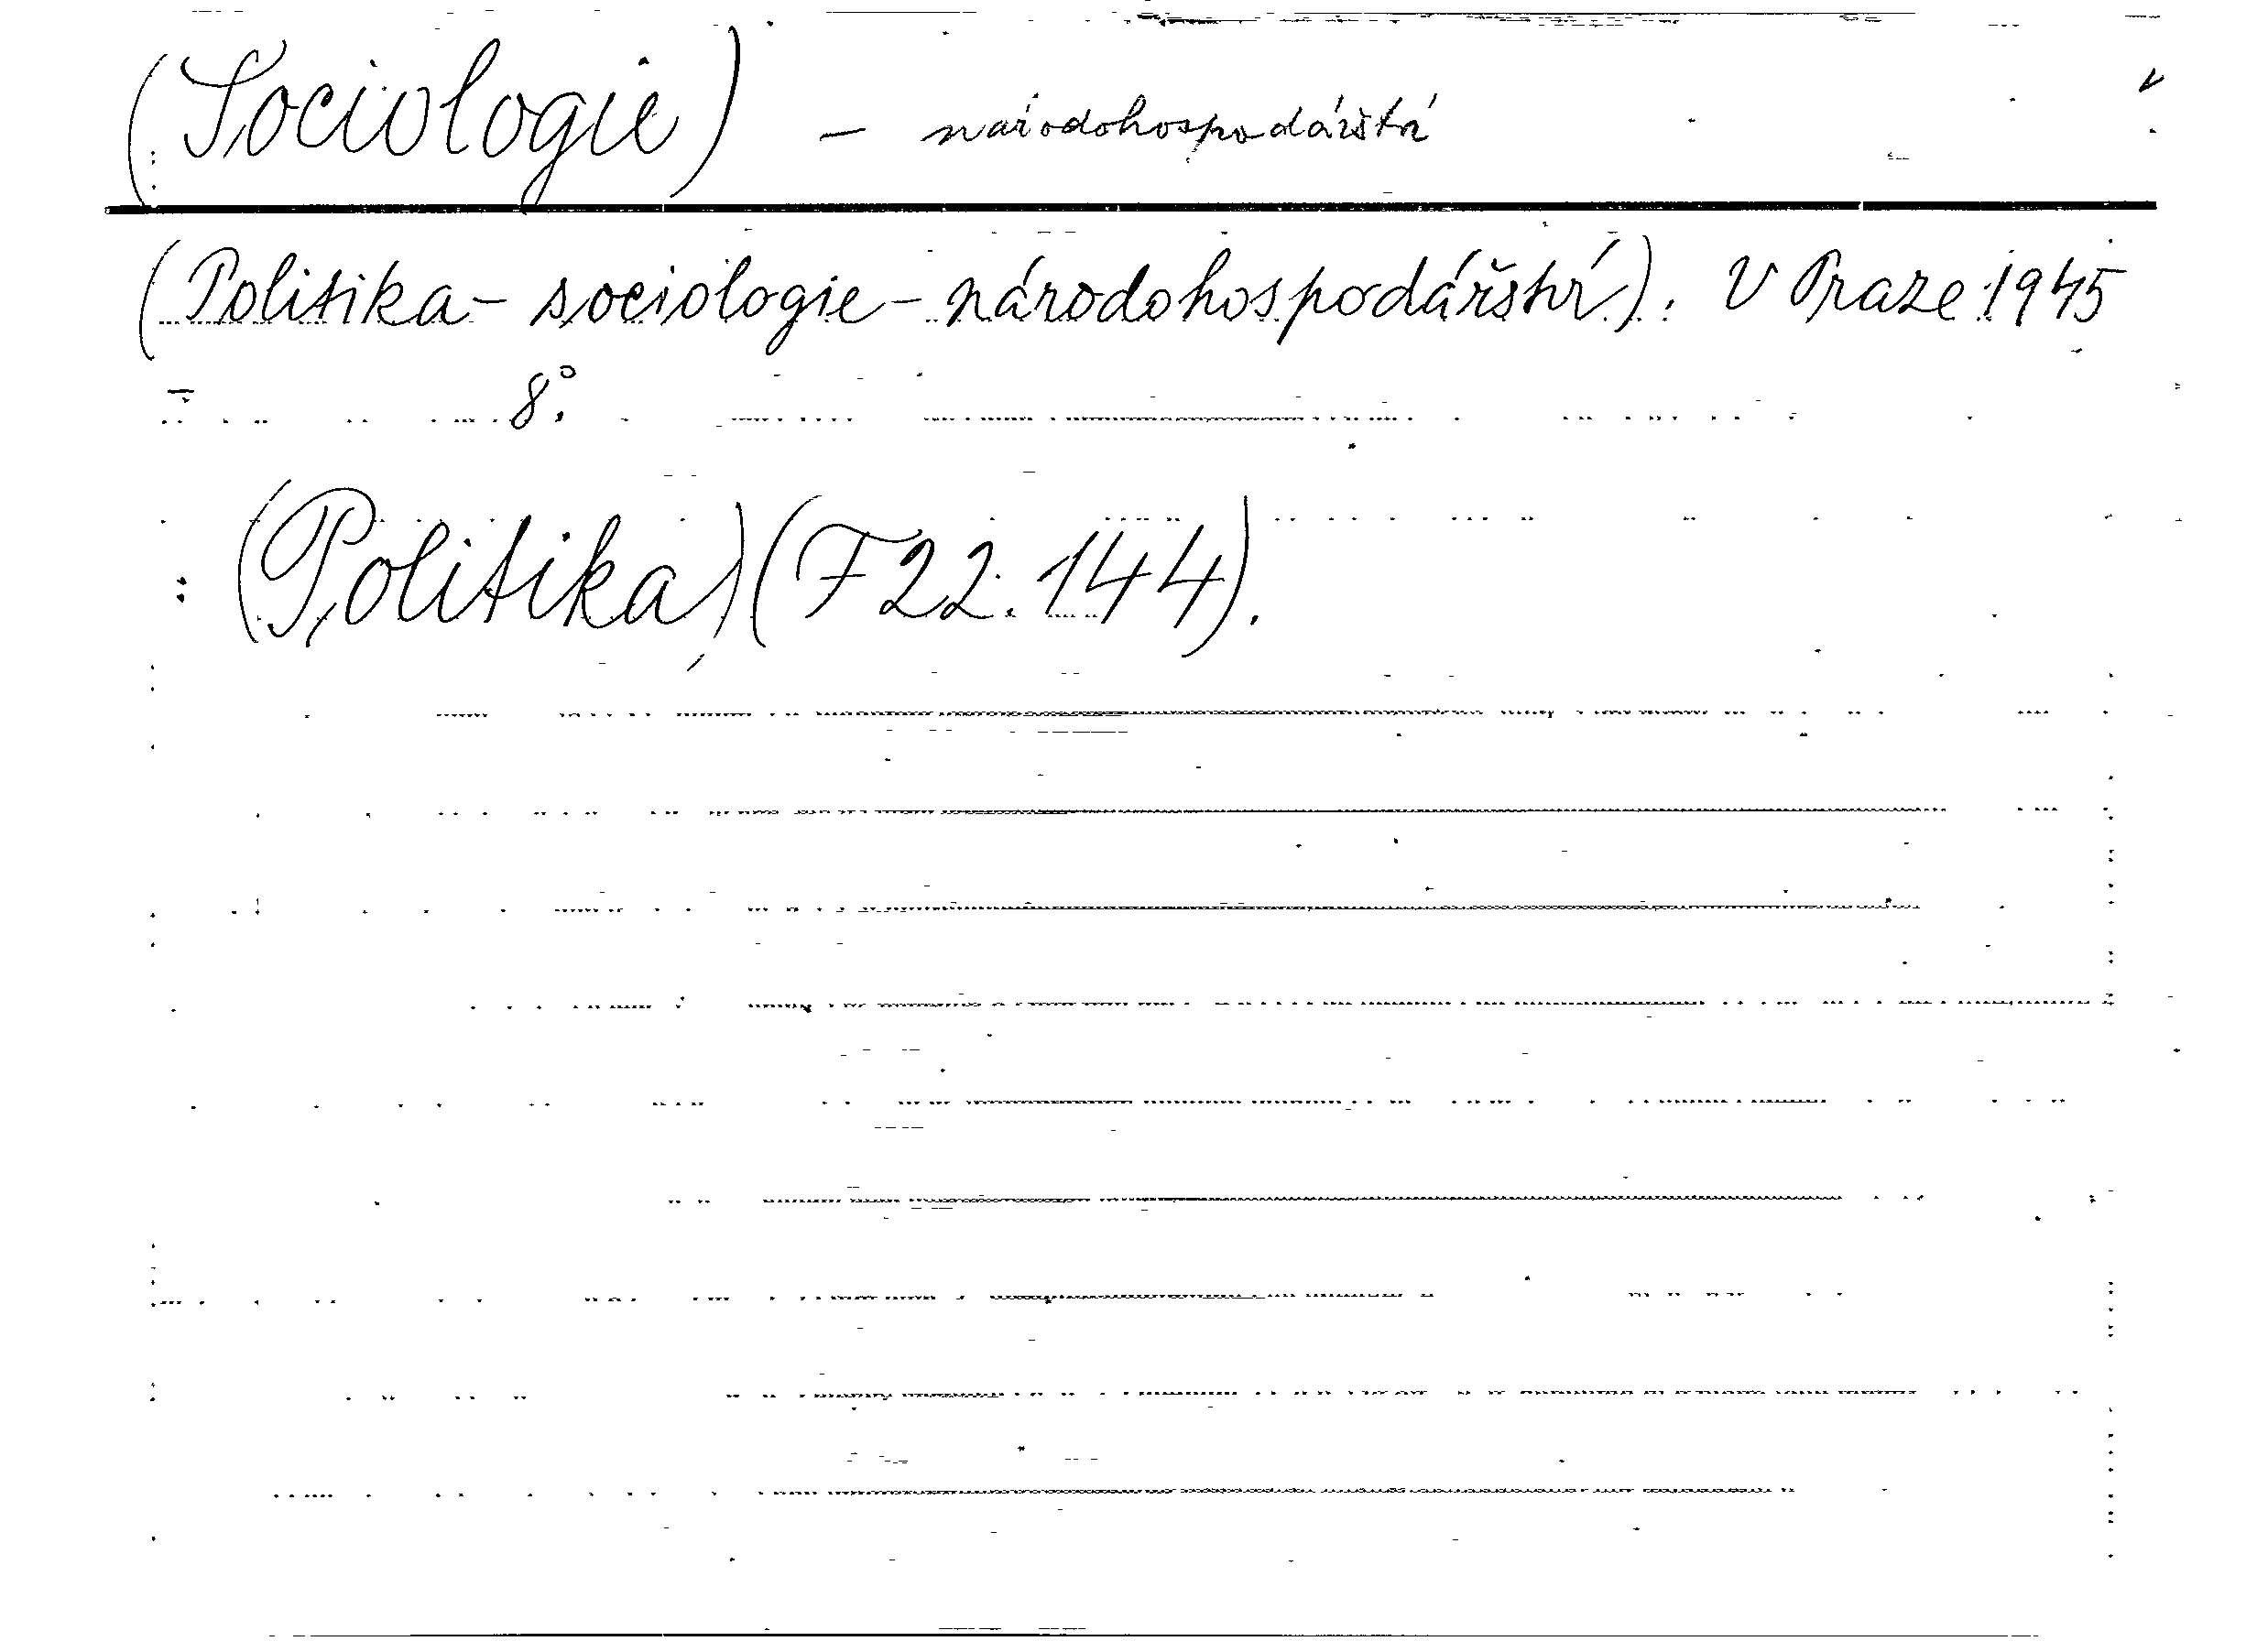 (Sociologie) – národohospodářství
(Politika – sociologie – národohospodářství). V Praze 1945
– 8°.
: (Politika) (F 22.144).